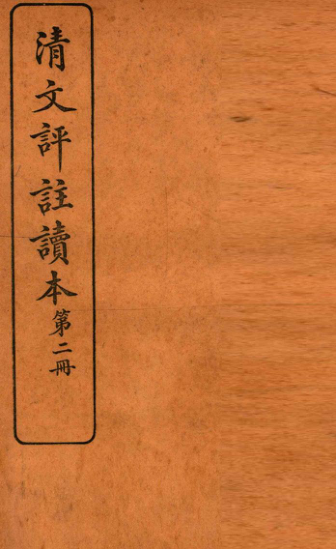 清文評註讀本第二冊